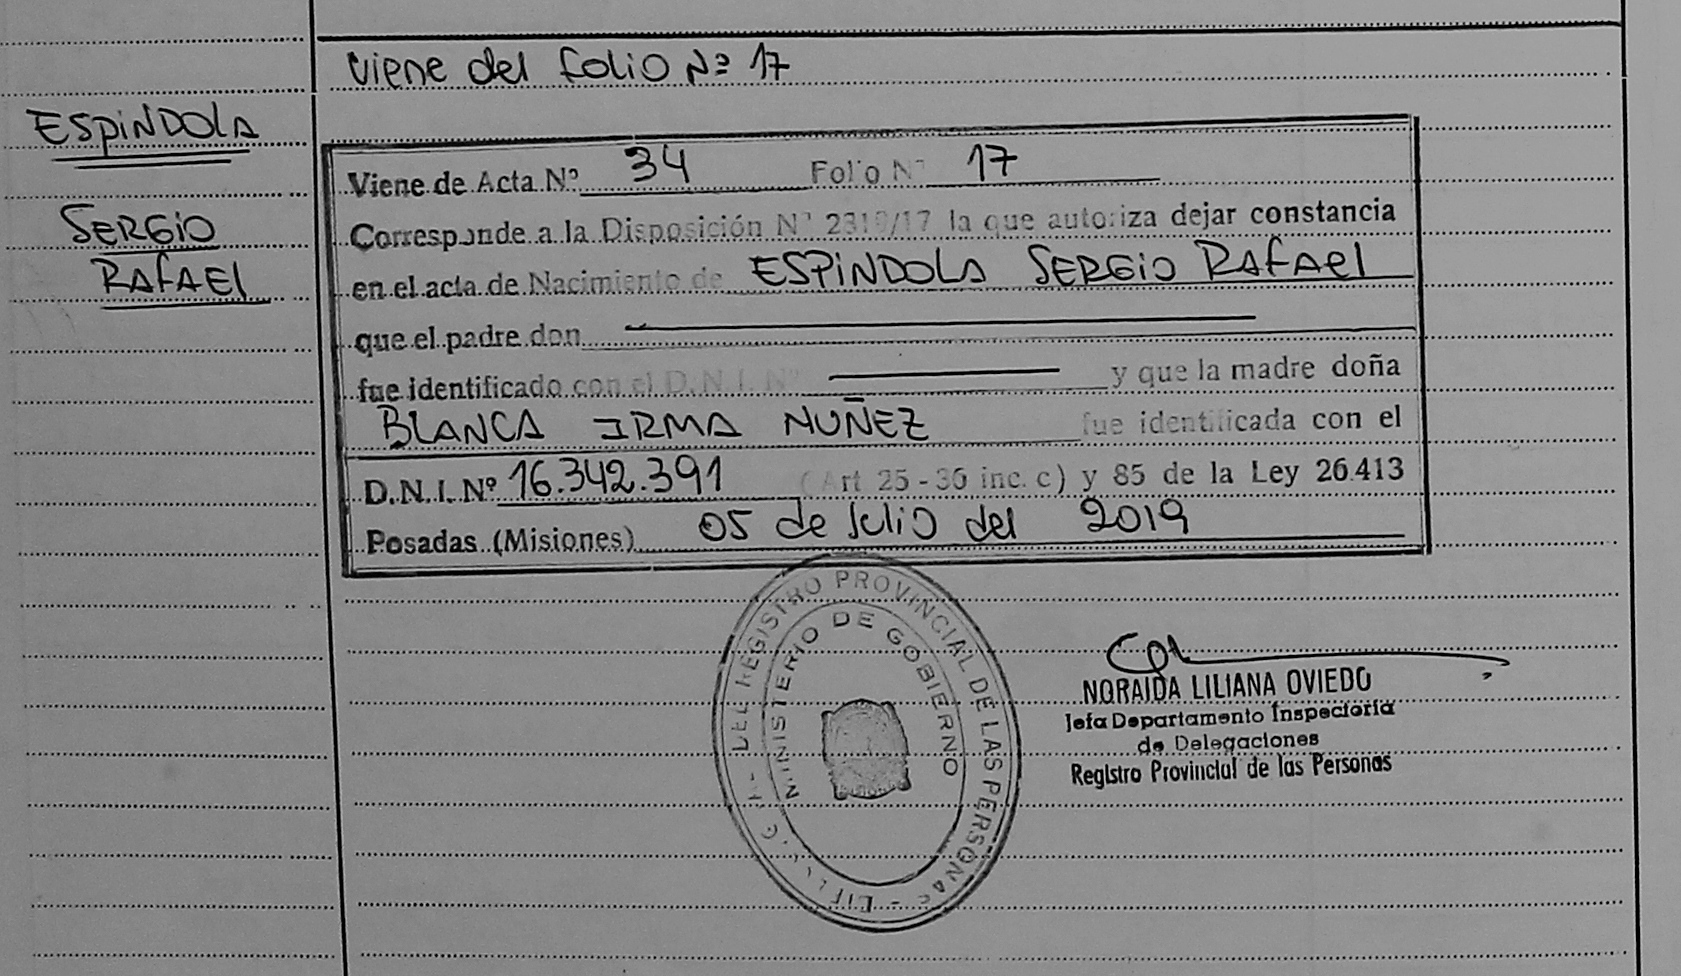 Viene del folio Nº 17
ESPINDOLA
SERGIO
RAFAEL
Viene de Acta Nº 34 Folio Nº 17
Corresponde a la Disposición Nº 2319/17 la que autoriza dejar constancia
en el acta de Nacimiento de ESPINDOLA SERGIO RAFAEL
que el padre don
fue identificado con el D.N.I. Nº y que la madre doña
BLANCA IRMA NUÑEZ fue identificada con el
D.N.I. Nº 16.342.391 (Art 25 - 36 inc. c) y 85 de la Ley 26.413
Posadas (Misiones) 05 de Julio del 2019
DEL REGISTRO PROVINCIAL DE LAS PERSONAS
MINISTERIO DE GOBIERNO
NORAIDA LILIANA OVIEDO
Jefa Departamento Inspectoría
de Delegaciones
Registro Provincial de las Personas